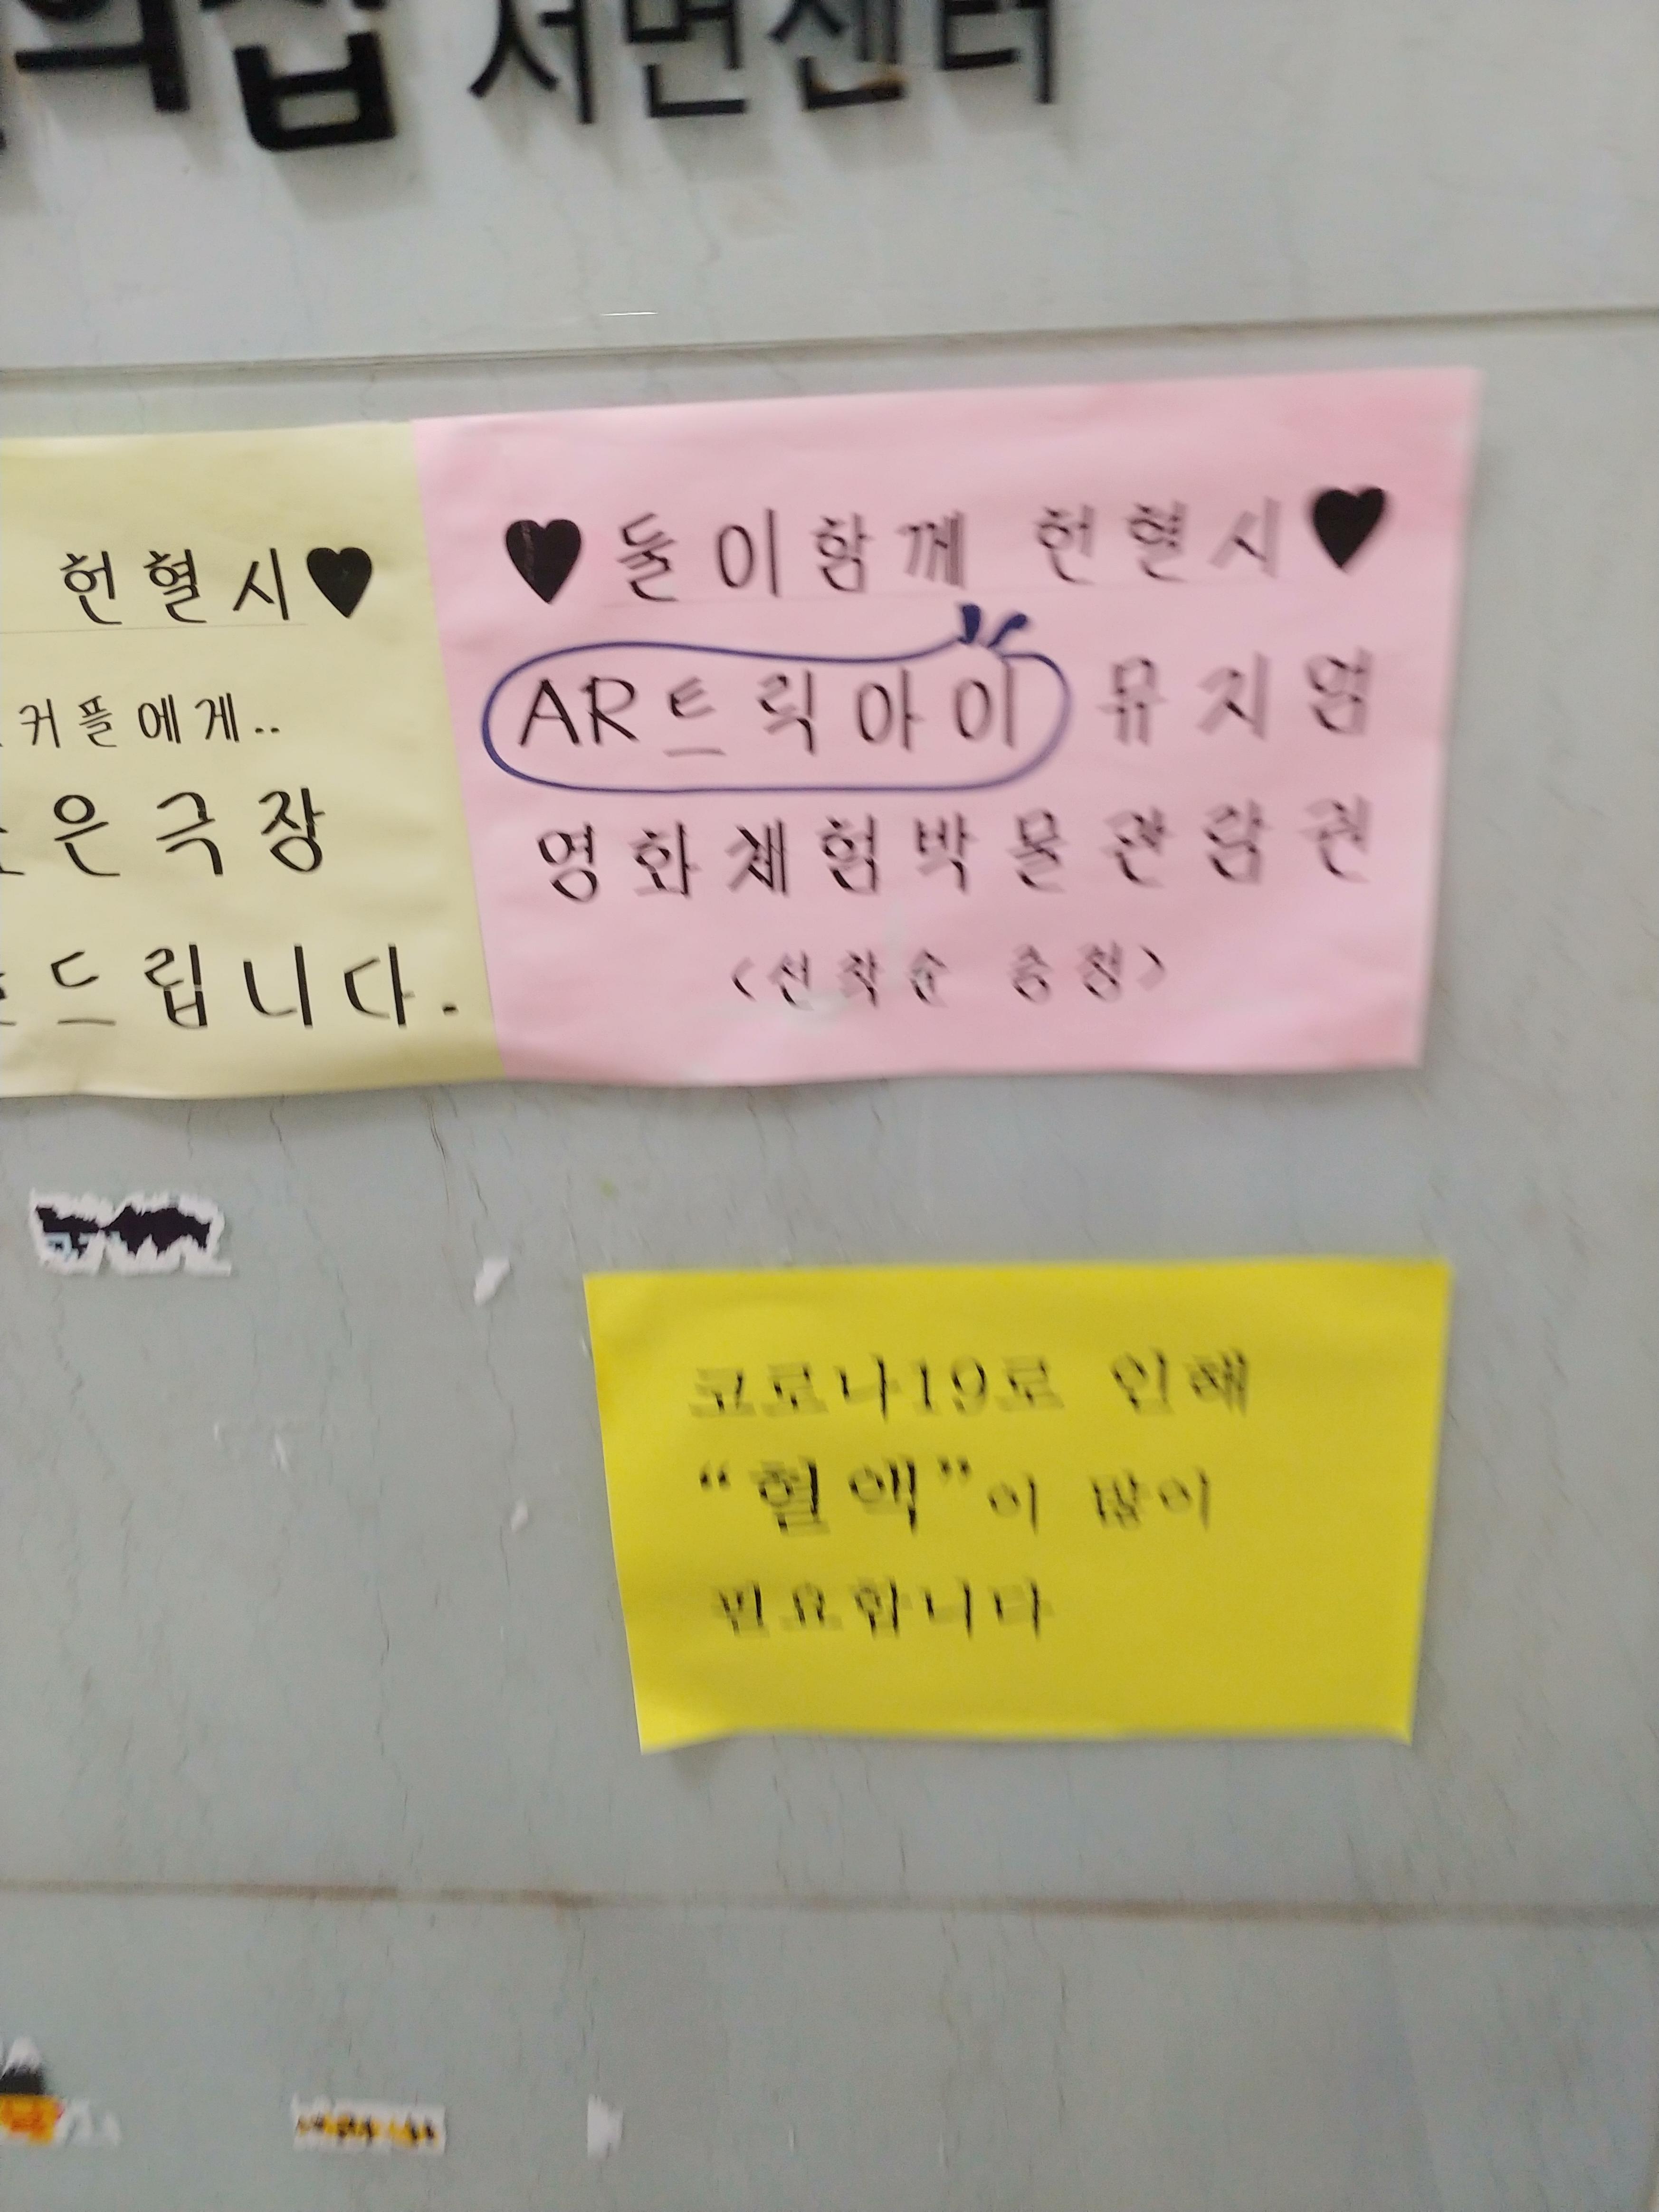 의집 서면센터
헌혈시♥
커플에게..
은극장
드립니다.
♥둘이함께 헌혈시♥
AR트릭아이 뮤지엄
영화체험박물관람권
<선착순 증정>
코로나19로 인해
“혈액”이 많이
필요합니다